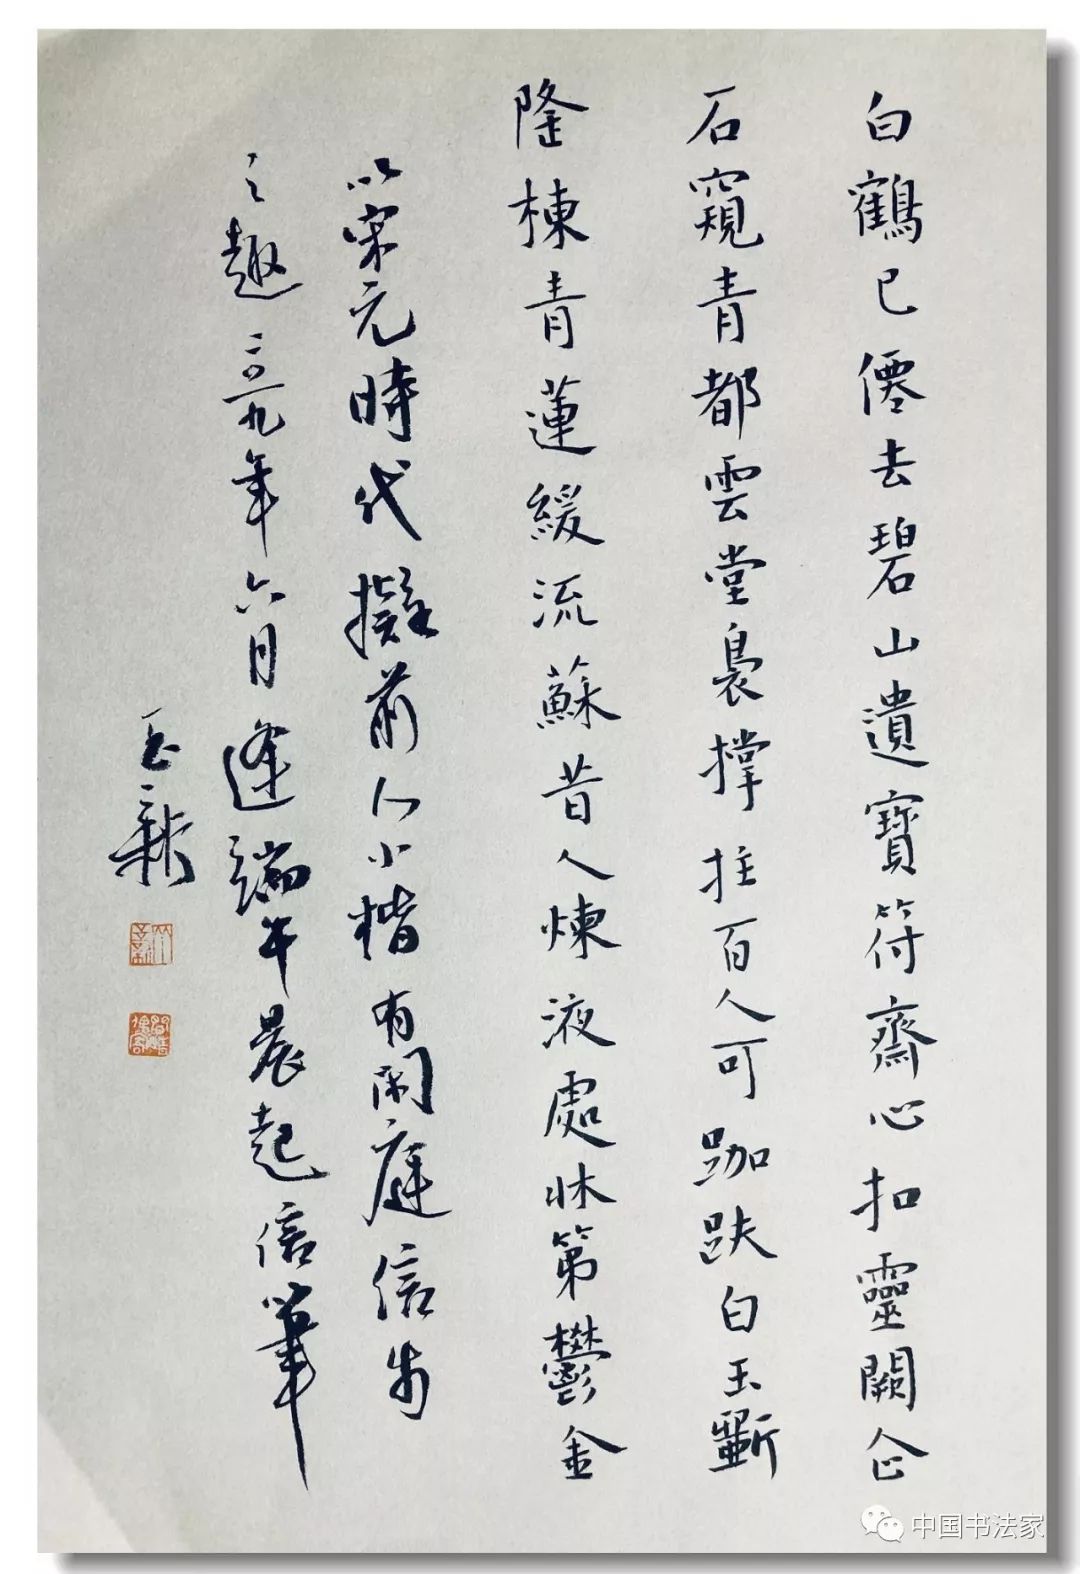 白鶴已僊去碧山遺寶符齋心扣靈闕仚
石窺青都雲堂裊撑拄百人可跏趺白玉斵
隆棟青蓮緩流蘇昔人煉液處牀第鬱金
以宋元時代擬前人小楷有閑庭信步
之趣二〇一九年六月逢端午晨起信筆
玉新
中国书法家